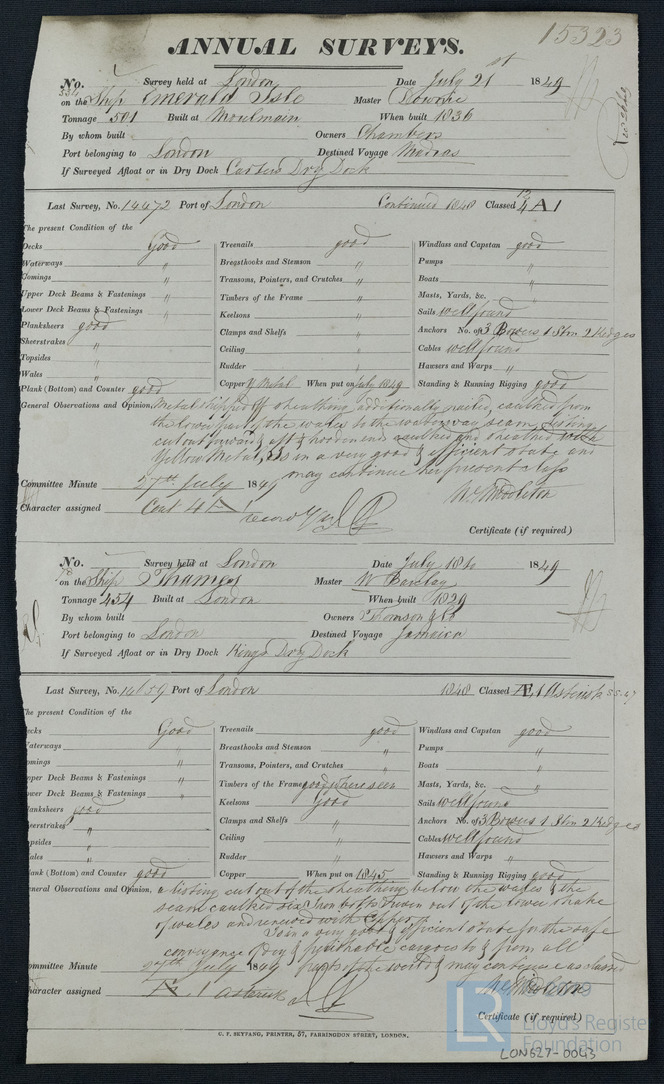 15323
ANNUAL SURVEYS.
No. 534 Survey held at London Date July 21st 1849
on the Ship Emerald Isle Master
Tonnage 501 Built at Moulmain When built 1836
By whom built Owners Chambers
Port belonging to London Destined Voyage Madras
If Surveyed Afloat or in Dry Dock Dry Dock
Last Survey, No. 14472 Port of London Continued 1848 Classed A 1
The present Condition of the
Decks Good
Waterways "
Comings "
Upper Deck Beams & Fastenings "
Lower Deck Beams & Fastenings "
Planksheers good
Sheerstrakes "
Topsides "
Wales "
Plank (Bottom) and Counter good
Treenails good
Breasthooks and Stemson "
Transoms, Pointers, and Crutches "
Timbers of the Frame "
Keelsons "
Clamps and Shelfs "
Ceiling "
Rudder "
Copper Y Metal When put on July 1849
Windlass and Capstan good
Pumps "
Boats "
Masts, Yards, &c. "
Sails well found
Anchors No. of 3 Bowers 1 Strm 2 Kedges
Cables well found
Hawsers and Warps "
Standing & Running Rigging good
General Observations and Opinion, Metal stripped off sheathing additionally nailed, caulked from
the lower part of the wales to the waterway seam, listing
cut out forward & aft & hooden ends caulked and sheathed with
Yellow Metal, is in a very good & efficient state and
may continue her present class
Committee Minute 27th July 1849 W. Middleton
Character assigned Cont 4 A 1
record
Certificate (if required)
No. 78 Survey held at London Date July 1849
on the Ship Thames Master W Barclay
Tonnage 454 Built at London When built 1829
By whom built Owners Thomson & Co
Port belonging to London Destined Voyage Jamaica
If Surveyed Afloat or in Dry Dock Kings Dry Dock
Last Survey, No. 14659 Port of London 1848 Classed Æ 1 Asterisk
The present Condition of the
ecks Good
aterways "
omings "
pper Deck Beams & Fastenings "
ower Deck Beams & Fastenings "
lanksheers good
eerstrakes "
opsides "
ales "
lank (Bottom) and Counter good
Treenails good
Breasthooks and Stemson "
Transoms, Pointers, and Crutches "
Timbers of the Frame good where seen
Keelsons Good
Clamps and Shelfs "
Ceiling "
Rudder "
Copper When put on 1845
Windlass and Capstan good
Pumps "
Boats "
Masts, Yards, &c. "
Sails well found
Anchors No. of 3 Bowers 1 Strm 2 Kedges
Cables well found
Hawsers and Warps "
Standing & Running Rigging good
eneral Observations and Opinion, a listing cut out of the sheathing below the wales & the
seam caulked six Iron bolts driven out of the lower strake
of wales and renewed with Copper
Is in a very good & efficient state for the safe
conveyance of dry & perishable cargoes to & from all
parts of the world & may continue as classed
ommittee Minute 27th July 1849 W. Middleton
haracter assigned Æ 1 asterisk
Certificate (if required)
C. F. SEYFANG, PRINTER, 57, FARRINGDON STREET, LONDON.
LR
Lloyd's Registe
Foundation
LON627-0043